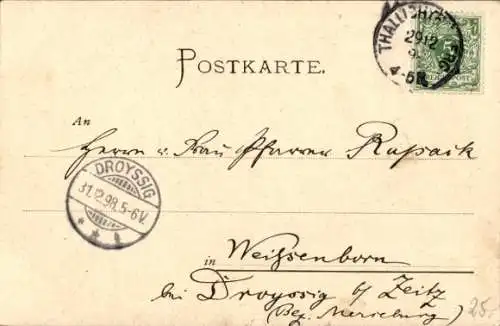 THALLICHT
29 12
4-5N.
POSTKARTE.
An
Herrn u. Frau Pfarrer Kapsack
DROYSSIG
31.12.98.5-6V.
in Weissenborn
bei Droyssig b/ Zeitz
(Bez. Merseburg)
25.-